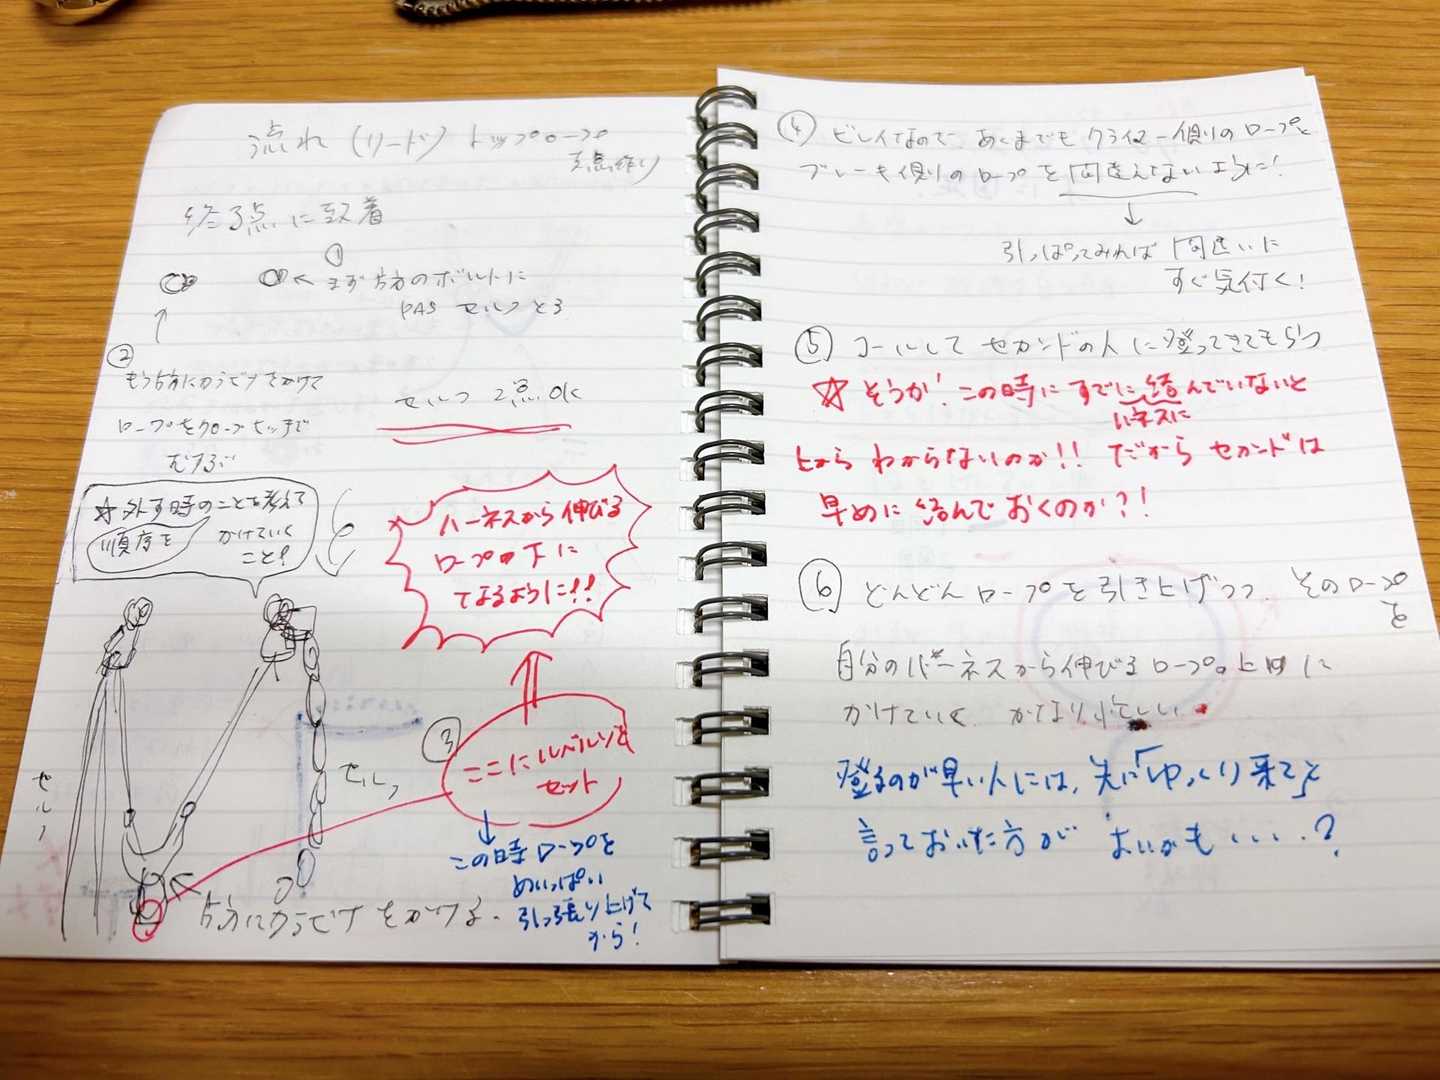 流れ(リード)トップロープ
支点作り
終了点に到着
①
← まず片方のボルトに
PAS セルフとる
↑
②
もう片方にカラビナをかけて
ロープをクローブヒッチで
むすぶ
セルフ 2点OK
☆外す時のことを考えて
順序を かけていく
こと!
ハーネスから伸びる
ロープの下に
なるように!!
③
ここにルベルソを
セット
セルフ
セルフ
↓
この時ロープを
めいっぱい
引っ張り上げて
から!
片方にカラビナをかける。
④ ビレイなので あくまでも クライマー側のロープと
ブレーキ側のロープを間違えないように!
↓
引っぱってみれば間違いに
すぐ気付く!
⑤ コールして セカンドの人に登ってきてもらう
☆ そうか! この時に すでに 結んでいないと
ハーネスに
上から わからないのか!! だから セカンドは
早めに 結んで おくのか?!
⑥ どんどん ロープを引き上げつつ そのロープ
を
自分のハーネスから伸びるロープの上に
かけていく かなり忙しい
登るのが早い人には、先に「ゆっくり来て」と
言っておいた方が よいかも....?